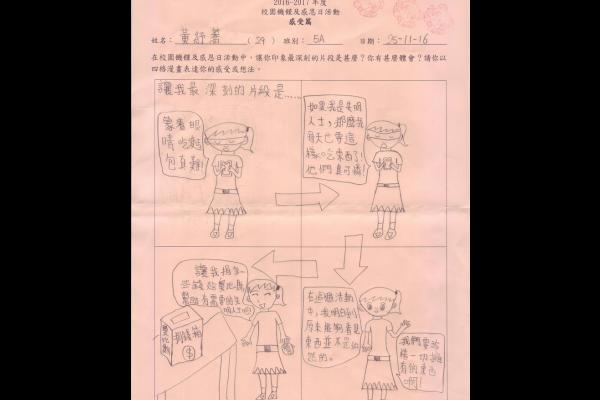 2016-2017 年度
校園機饉及感恩日活動
感受篇
姓名： 黃紓蕎 (29) 班別： 5A 日期： 25-11-16
在校園機饉及感恩日活動中，讓你印象最深刻的片段是甚麼？你有甚麼體會？請你以
四格漫畫表達你的感受或想法。
讓我最深刻的片段是......
蒙着眼
睛吃麵
包真難！
如果我是失明
人士，那麼我
每天也要這
樣吃東西了！
他們真可憐！
讓我捐出一
些錢給奧比斯
幫助有需要的失
明人士吧！
奧比斯
捐錢箱
$
在這個活動
中，我明白到
原來能夠看見
東西並不是必
然的。
我們要珍
惜一切擁
有的東西
啊！